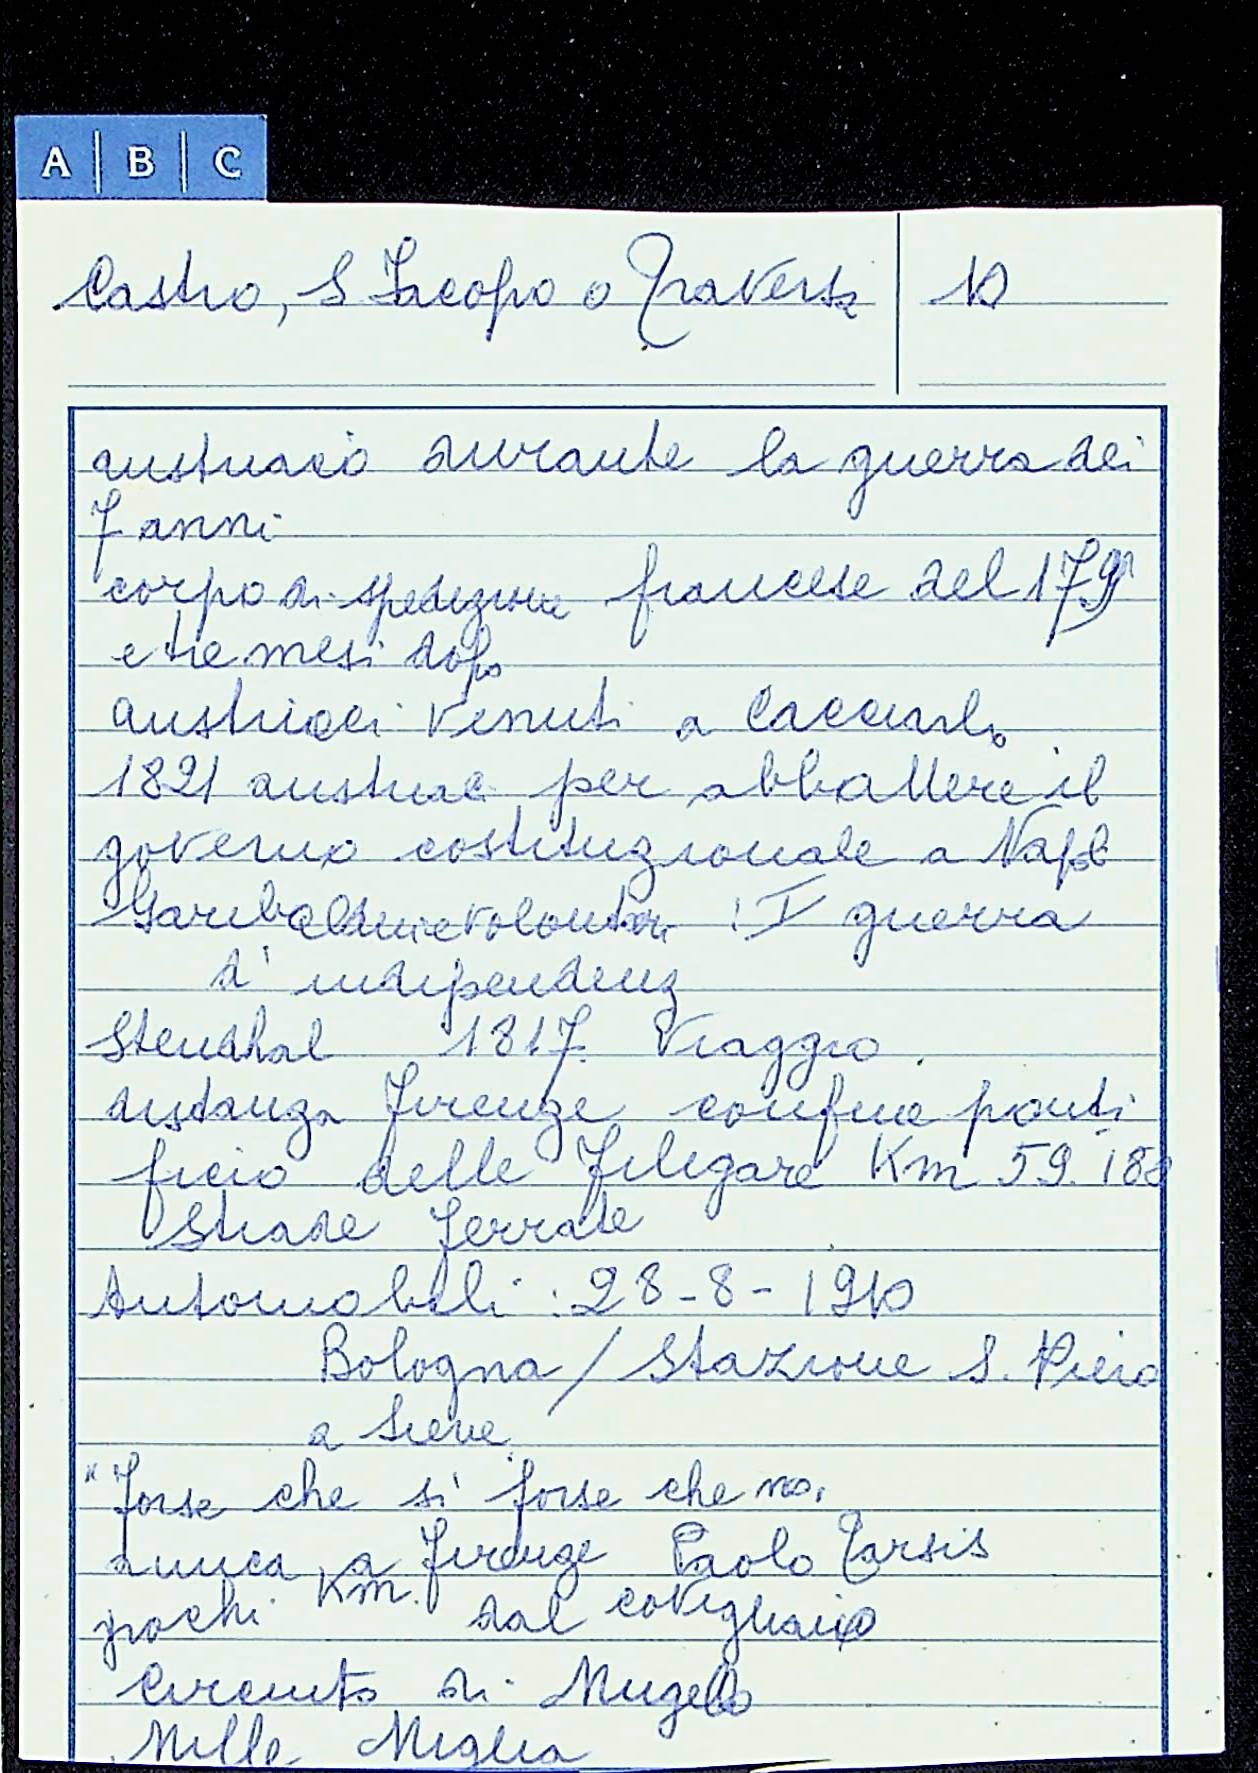 A | B | C
Castro, S Iacopo o Traversa
10
austriaco durante la guerra dei
7 anni
corpo di spedizione francese del 179
e tre mesi dopo
austriaci venuti a cacciarlo
1821 austriaci per abbattere il
governo costituzionale a Napoli
Garibaldini e volontari I guerra
d'indipendenz
Stendhal 1817 Viaggio
distanza Firenze confine ponti
ficio delle Filigare Km 59.188
Strade ferrate
Automobili : 28-8-1910
Bologna / Stazione S. Piero
a Sieve
"Forse che sì forse che no,
a Firenze Paolo Tarsis
pochi Km. dal covigliaio
Circuito di Mugello
Mille Miglia